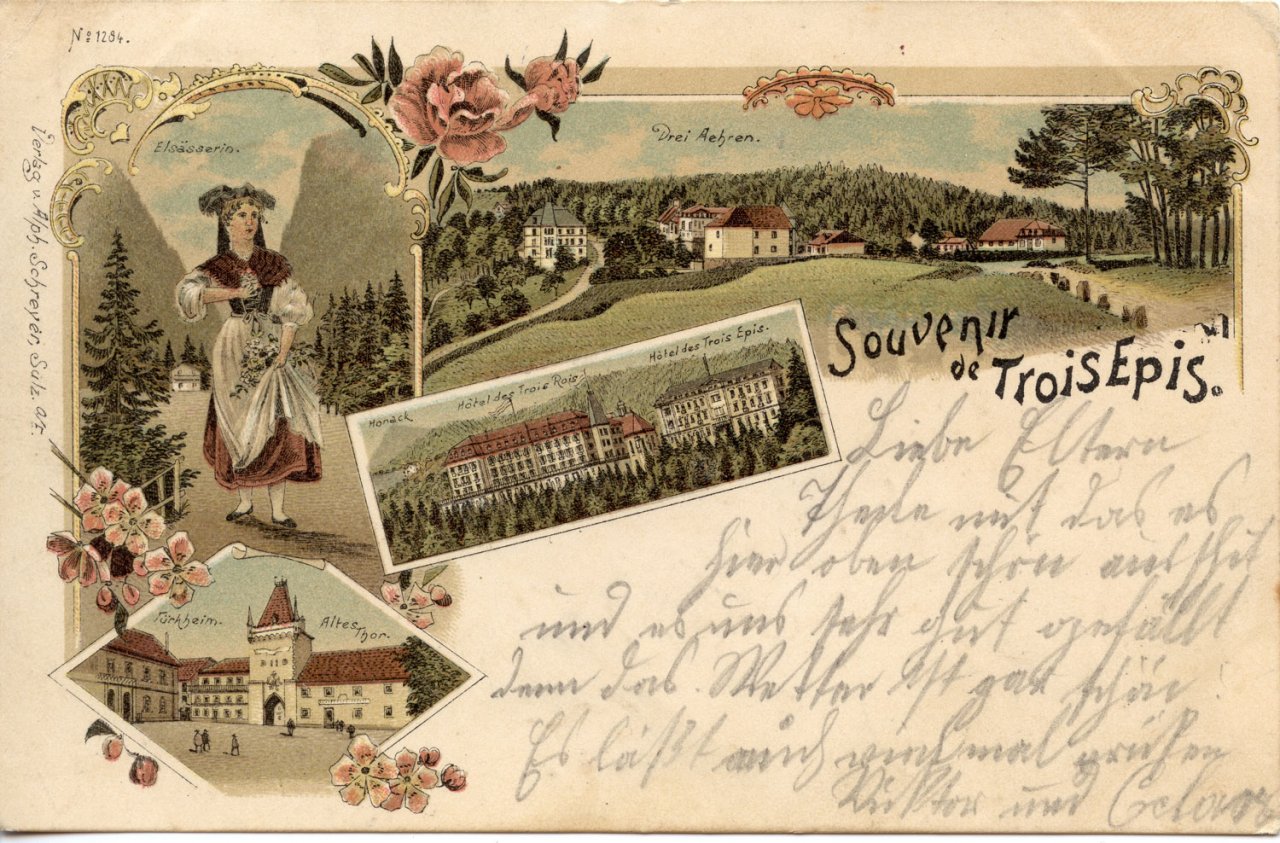 No 1284.
Elsässerin.
Drei Aehren.
Verlag v. Alph. Schreyer, Sulz. O/E
Souvenir
de Trois Epis.
Honack
Hôtel des Trois Rois
Hôtel des Trois Epis.
Türkheim.
Altes
Thor.
Liebe Eltern
Theile mit das es
hier oben schön aussiht
und es uns sehr gut gefällt
denn das Wetter ist gar schön
Es läßt auch vielmal grüßen
und